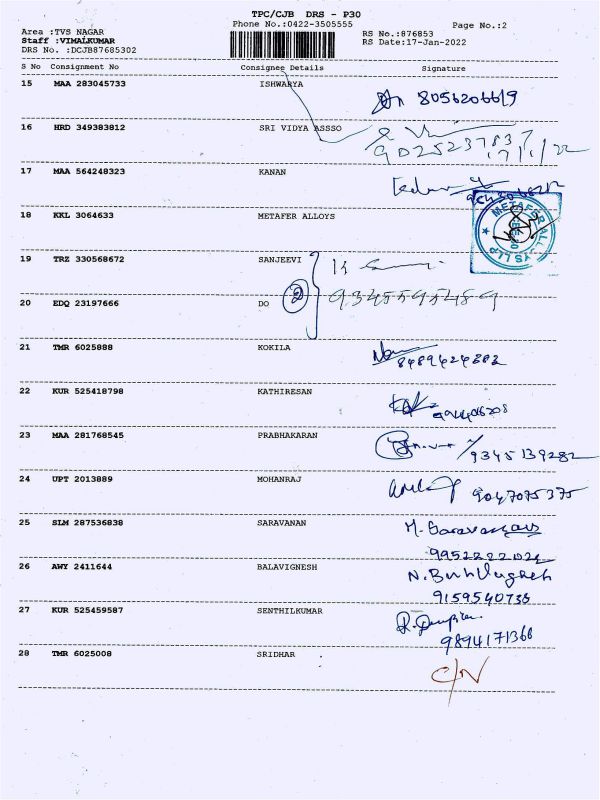 TPC/CJB DRS - P30
Phone No.:0422-3505555
Page No.:2
Area :TVS NAGAR
RS No.:876853
Staff :VIMALKUMAR
RS Date:17-Jan-2022
DRS No. :DCJB87685302
S No Consignment No Consignee Details Signature
15 MAA 283045733 ISHWARYA
8056206619
16 HRD 349383812 SRI VIDYA ASSSO
9025237837
17/1/22
17 MAA 564248323 KANAN
18 KKL 3064633 METAFER ALLOYS
19 TRZ 330568672 SANJEEVI
20 EDQ 23197666 DO 2 9345595489
21 TMR 6025888 KOKILA
8489424882
22 KUR 525418798 KATHIRESAN
23 MAA 281768545 PRABHAKARAN
9345139282
24 UPT 2013889 MOHANRAJ
9047075375
25 SLM 287536838 SARAVANAN
M. Saravanan
26 AWY 2411644 BALAVIGNESH
9159540735
27 KUR 525459587 SENTHILKUMAR
9894171366
28 TMR 6025008 SRIDHAR
C/N